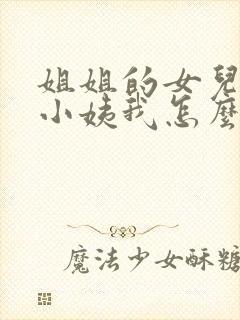 姐姐的女兒
小姨我怎麼
魔法少女酥糖